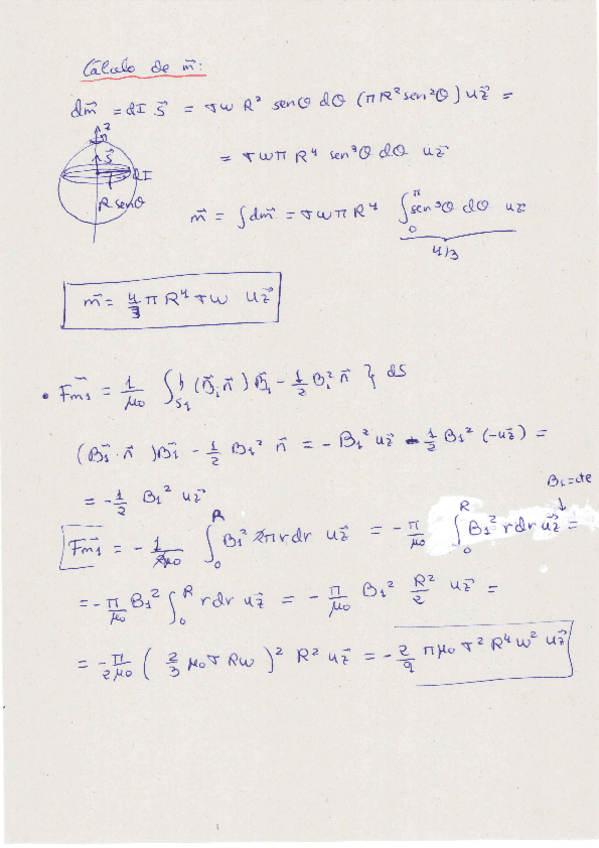 Cálculo de m⃗:
dm⃗ = dI S⃗ = σω R² senθ dθ (πR² sen²θ) u⃗z =
z
S⃗
dI
R senθ
= σωπ R⁴ sen³θ dθ u⃗z
m⃗ = ∫dm⃗ = σωπ R⁴ ∫₀^π sen³θ dθ u⃗z
4/3
m⃗ = 4/3 π R⁴ σω u⃗z
• F⃗m1 = 1/μ₀ ∫S₁ { (B⃗₁·n⃗) B⃗₁ - 1/2 B₁² n⃗ } dS
(B⃗₁·n⃗) B⃗₁ - 1/2 B₁² n⃗ = - B₁² u⃗z - 1/2 B₁² (-u⃗z) =
= - 1/2 B₁² u⃗z
B₁=cte
F⃗m1 = - 1/2μ₀ ∫₀^R B₁² 2πrdr u⃗z = - π/μ₀ ∫₀^R B₁² rdr u⃗z =
= - π/μ₀ B₁² ∫₀^R rdr u⃗z = - π/μ₀ B₁² R²/2 u⃗z =
= - π/2μ₀ ( 2/3 μ₀ σ Rω )² R² u⃗z = - 2/9 πμ₀ σ² R⁴ ω² u⃗z